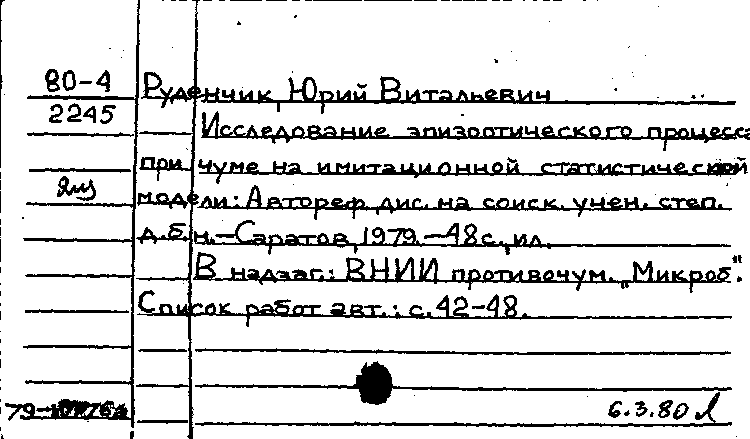 80-4
2245
Руденчик Юрий Витальевич
Исследование эпизоотического процесса
при чуме на имитационной статистической
модели: Автореф. дис. на соиск. учен. степ.
д.б.н.-Саратов, 1979.-48с., ил.
В надзаг.: ВНИИ противочум. "Микроб".
Список работ авт.: с.42-48.
6.3.80